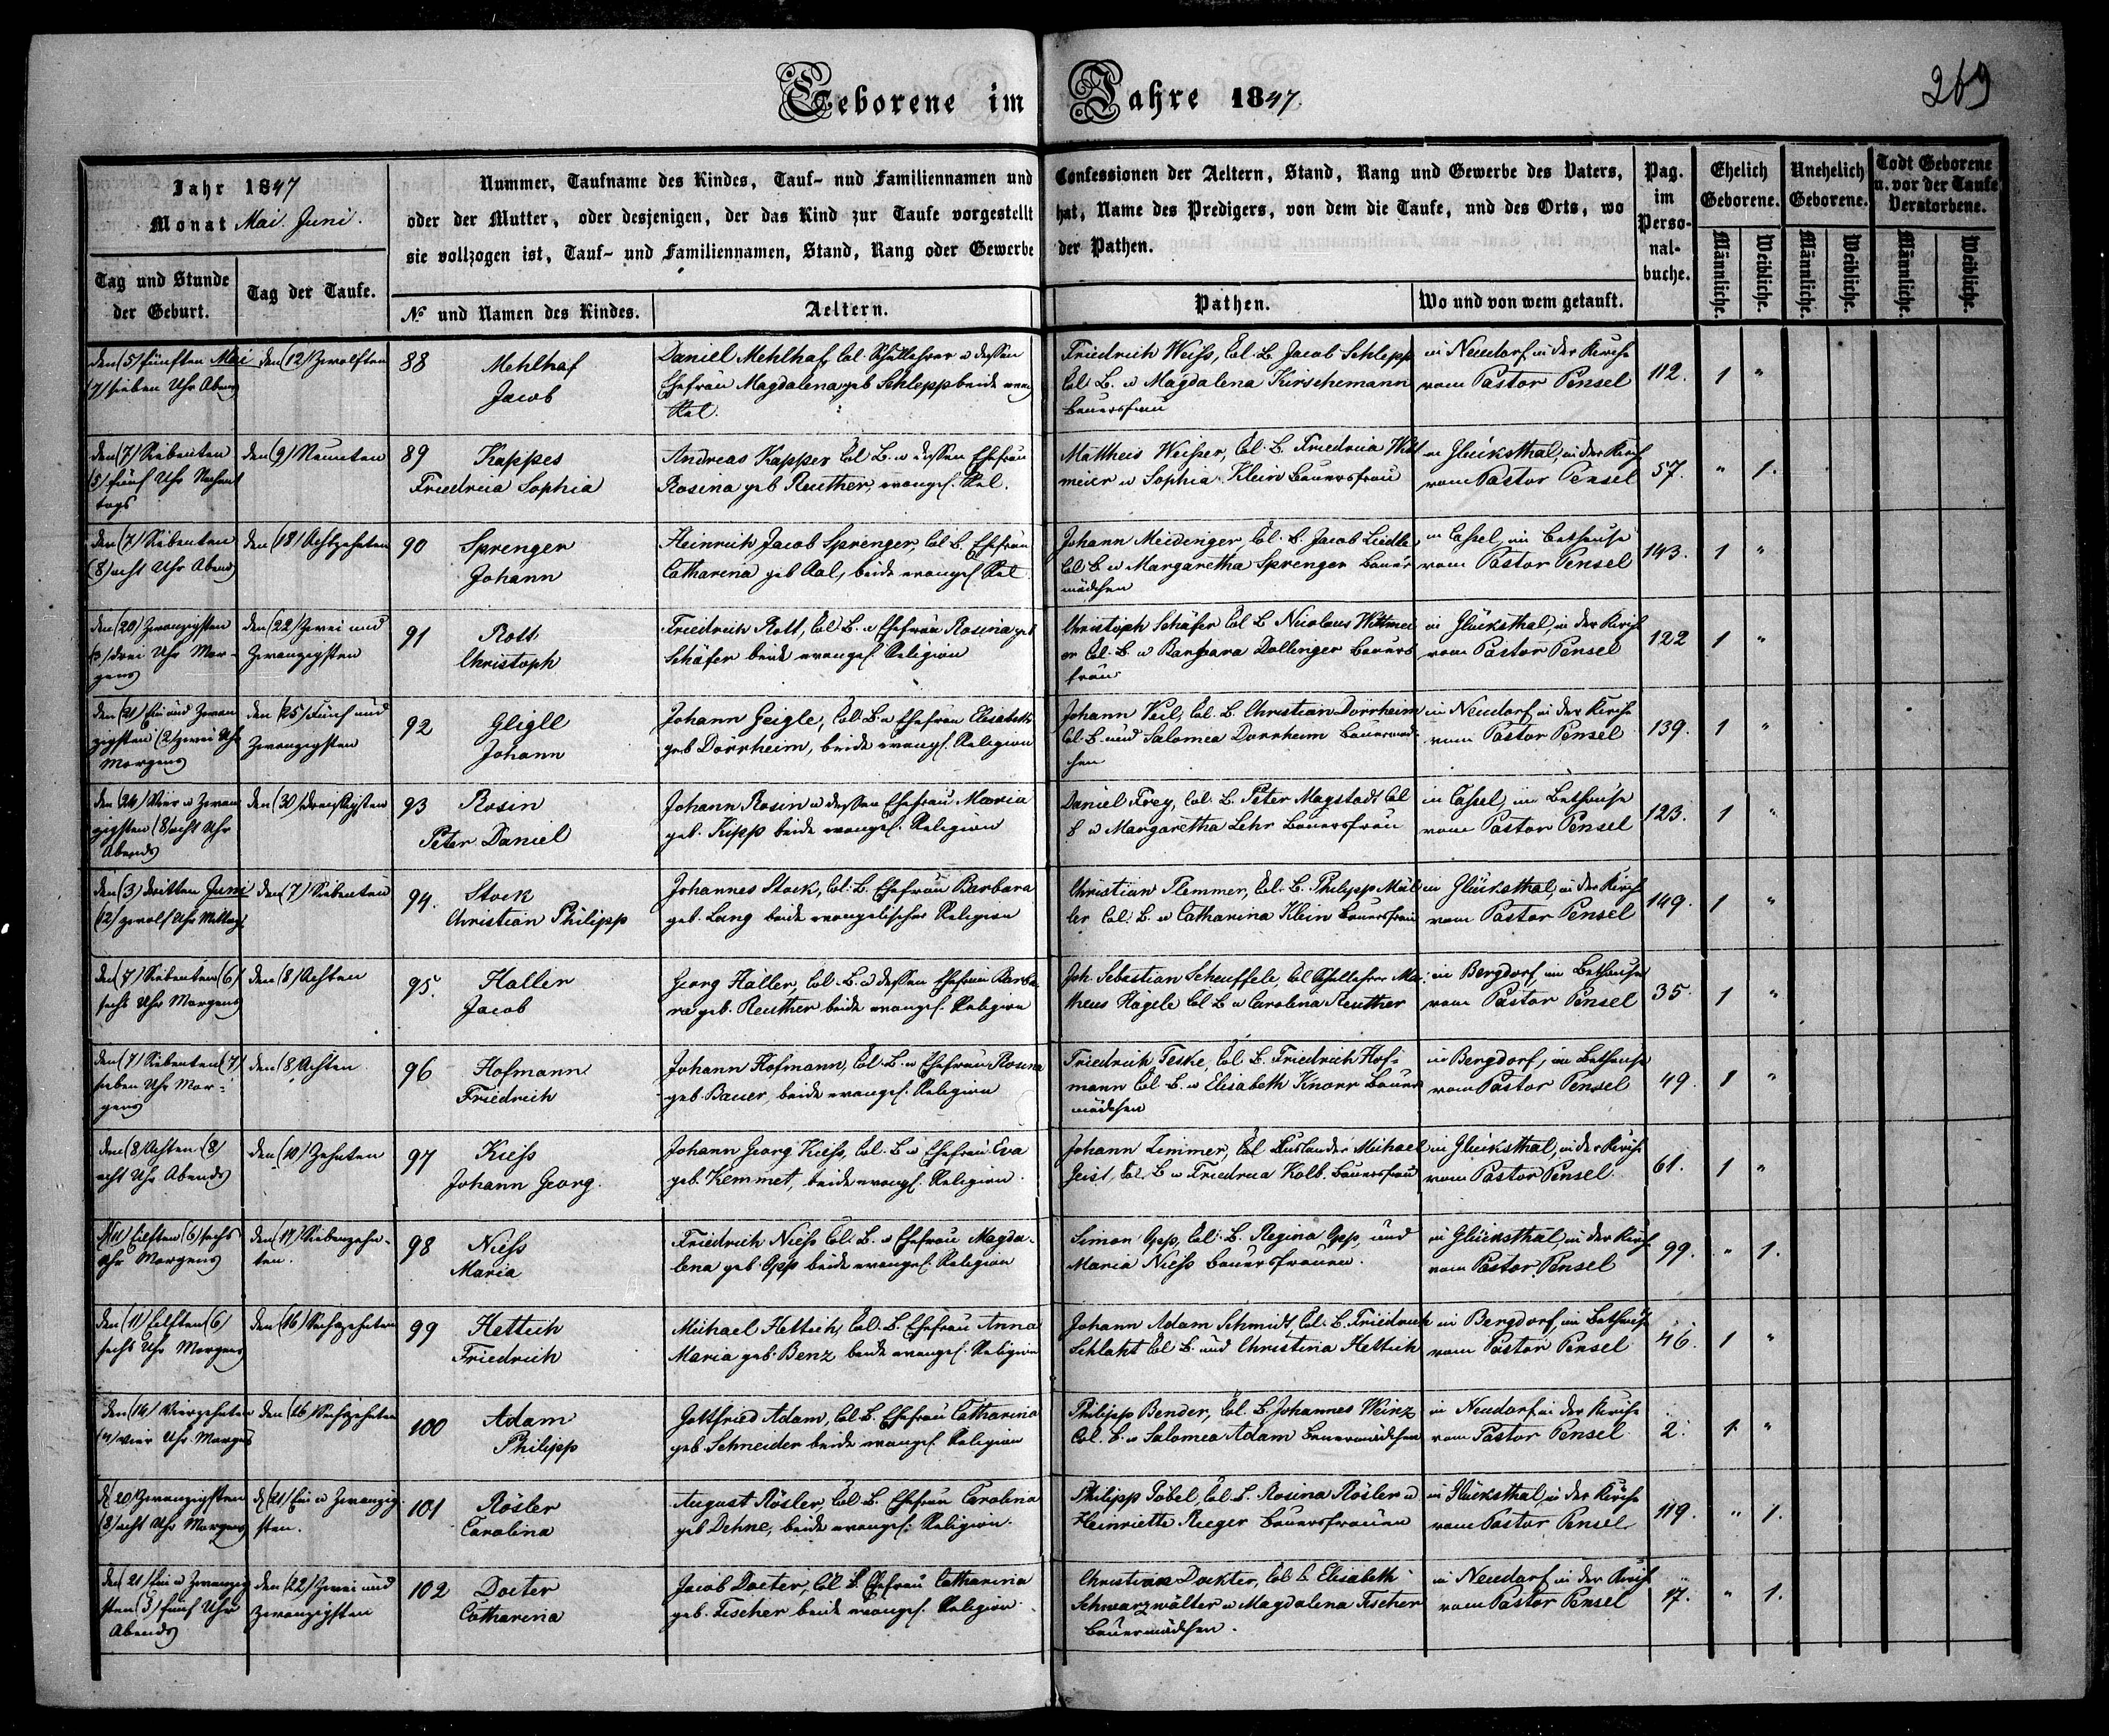 Geborene im Jahre 1847.
269
Jahr 1847
Monat Mai. Juni.
Nummer, Taufname des Kindes, Tauf- nud Familiennamen und
oder der Mutter, oder desjenigen, der das Kind zur Taufe vorgestellt
sie vollzogen ist, Tauf- und Familiennamen, Stand, Rang oder Gewerbe
Confessionen der Aeltern, Stand, Rang und Gewerbe des Vaters,
hat, Name des Predigers, von dem die Taufe, und des Orts, wo
der Pathen.
Pag. im Perso-nal-buche.
Ehelich Geborene.
Unehelich Geborene.
Todt Geborene u. vor der Taufe Verstorbene.
Tag und Stunde der Geburt.
Tag der Taufe.
No und Namen des Kindes.
Aeltern.
Pathen.
Wo und von wem getauft.
Männliche. Weibliche. Männliche. Weibliche. Männliche. Weibliche.
den (5) fünften Mai
(7) sieben Uhr Abends
den (12) zwolften
88 Mehlhaf
Jacob
Daniel Mehlhaf, Col. Schullehrer u dessen
Ehefrau Magdalena geb Schlepp beide evang
Rel.
Friedrich Weiss, Col. B. Jacob Schlepp
Col. B. u Magdalena Kirschemann
Bauersfrau
in Neudorf in der Kirche
vom Pastor Pensel
112. 1 "
den (7) Siebenten
(5) fünf Uhr Nachmit
tags
den (9) Neunten
89 Kappes
Friedricia Sophia
Andreas Kappes Col B. u dessen Ehefrau
Rosina geb Reuther, evangel. Rel.
Mattheis Weisser, Col. B. Friedricia Witt
meier u Sophia Klein Bauersfrau
in Glücksthal, in der Kirch
vom Pastor Pensel
57. " 1.
den (7) Siebenten
(8) acht Uhr Abend
den (18) Achtzehnten
90 Sprenger
Johann
Heinrich Jacob Sprenger, Col. B. Ehefrau
Catharina geb Aal, beide evangel Rel
Johann Meidinger, Col. B. Jacob Liedtke
Col. B u Margaretha Sprenger Bauer
mädchen
in Cassel, im Bethause
vom Pastor Pensel
143. 1 "
den (20) Zwanzigsten
(3) drei Uhr Mor-
gens
den (22) Zwei und
Zwanzigsten
91 Rott
Christoph
Friedrich Rott, Col. B. u Ehefrau Rosina geb
Schäfer beide evangel. Religion
Christoph Schäfer Col B Nicolaus Wittmei
er Col. B u Barbara Dollinger Bauers
frau
in Glücksthal, in der Kirch
vom Pastor Pensel
122 1 "
den (21) Ein und Zwan
zigsten (2) zwei Uhr
Morgens
den (25) Fünf und
Zwanzigsten
92 Gligle
Johann
Johann Geigle, Col. B. u Ehefrau Elisabeth
geb Dörrheim, beide evangel. Religion
Johann Veil, Col. B. Christian Dorrheim
Col. B. und Salomea Dorrheim Bauermäd-
chen
in Neudorf in der Kirche
vom Pastor Pensel
139. 1 "
den (24) Vier u Zwan
zigsten (8) acht Uhr
Abends
den (30) dreissigsten
93 Rosin
Peter Daniel
Johann Rosin u dessen Ehefrau Maria
geb. Kipp beide evangel. Religion
Daniel Frey, Col. B. Peter Magstadt Col
B u Margaretha Lehr Bauersfrau
in Cassel, im Bethause
vom Pastor Pensel
123. 1 "
den (3) dritten Juni
(12) zwolf Uhr Mittag
den (7) Siebenten
94. Stock
Christian Philipp
Johannes Stock, Col. B. Ehefrau Barbara
geb. Lang beide evangelischer Religion
Christian Flemmer, Col. B. Philipp Mül
ler Col. B. u Catharina Klein Bauersfrau
in Glücksthal, in der Kirch
vom Pastor Pensel
149. 1 "
den (7) Siebenten (6)
sechs Uhr Morgens
den (8) Achten
95. Haller
Jacob
Georg Haller, Col. B. u dessen Ehefrau Barba
ra geb. Reuther beide evangel. Religion
Joh. Sebastian Scheuffele, Col Schullehrer Mat
theus Hägele Col B u Carolina Reuther
in Bergdorf im Bethause
vom Pastor Pensel
35. 1 "
den (7) Siebenten (7)
sieben Uhr Mor-
gens
den (8) Achten
96 Hofmann
Friedrich
Johann Hofmann, Col. B. u Ehefrau Rosina
geb. Bauer, beide evangel. Religion
Friedrich Feske, Col. B. Friedrich Hof-
mann Col. B. u Elisabeth Knorr Bauer
mädchen
in Bergdorf, im Bethause
vom Pastor Pensel
49. 1 "
den (8) Achten (8)
acht Uhr Abends
den (10) Zehnten
97 Kiess
Johann Georg.
Johann Georg Kiess, Col. B u Ehefrau Eva
geb. Kemmet, beide evangel. Religion.
Johann Zimmer, Col Auslander Michael
Geist, Col. B u Friedrica Kolb. Bauersfrau
in Glücksthal, in der Kirche
vom Pastor Pensel.
61. 1 "
d (11) Eilften (6) sechs
Uhr Morgens
den (17) Siebenzehn-
ten.
98 Niess
Maria
Friedrich Niess Col. B. u Ehefrau Magda-
lena geb. Opp beide evangel. Religion
Simon Opp, Col. B. Regina Opp, und
Maria Niess Bauersfrauen.
in Glücksthal, in der Kirch
vom Pastor Pensel
99. " 1.
den (11) Eilften (6)
sechs Uhr Morgens
den (16) Sechzehnten
99 Hettich
Friedrich
Michael Hettich, Col. B. Ehefrau Anna
Maria geb. Benz beide evangel. Religion
Johann Adam Schmidt, Col. B. Friedrich
Schlaht Col B. und Christina Hettich
in Bergdorf, im Bethause
vom Pastor Pensel
46. 1 "
den (14) Vierzehnten
(4) vier Uhr Morgens
den (16) Sechzehnten
100 Adam
Philipp
Gottfried Adam, Col. B. Ehefrau Catharina
geb. Schneider beide evangel. Religion
Philipp Bender, Col. B. Johannes Weinz
Col. B. u Salomea Adam Bauermädchen
in Neudorf in der Kirche
vom Pastor Pensel
2. 1 "
d 20) Zwanzigsten
(8) acht Uhr Morgens
d (21) Ein u Zwanzig-
sten.
101 Rösler
Carolina
August Rösler, Col. B. Ehefrau Carolina
geb. Dehne, beide evangel. Religion.
Philipp Göbel, Col. B. Rosina Rösler u
Heinriette Rieger Bauersfrauen
in Glücksthal, in der Kirche
vom Pastor Pensel.
119. " 1.
den (21) Ein u Zwanzig
sten (5) fünf Uhr
Abends
den (22) Zwei und
Zwanzigsten
102 Docter
Catharina
Jacob Docter, Col. B. Ehefrau Catharina
geb. Fischer beide evangel. Religion
Christian Dockter, Col. B. Elisabeth
Schwarzwälter u Magdalena Fischer
Bauermädchen.
in Neudorf in der Kirch
vom Pastor Pensel
17. " 1.